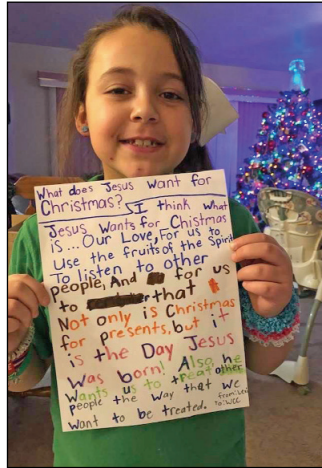 What does Jesus want for
Christmas? I think what
Jesus wants for Chistmas
is... Our Love, For us to
Use the fruits of the Spirit
To listen to other
people, And for us
to that
Not only is Christmas
for presents, but it
is the Day Jesus
Was born! Also, he
Wants us to treat other
people the way that we
want to be treated.
to: WCC